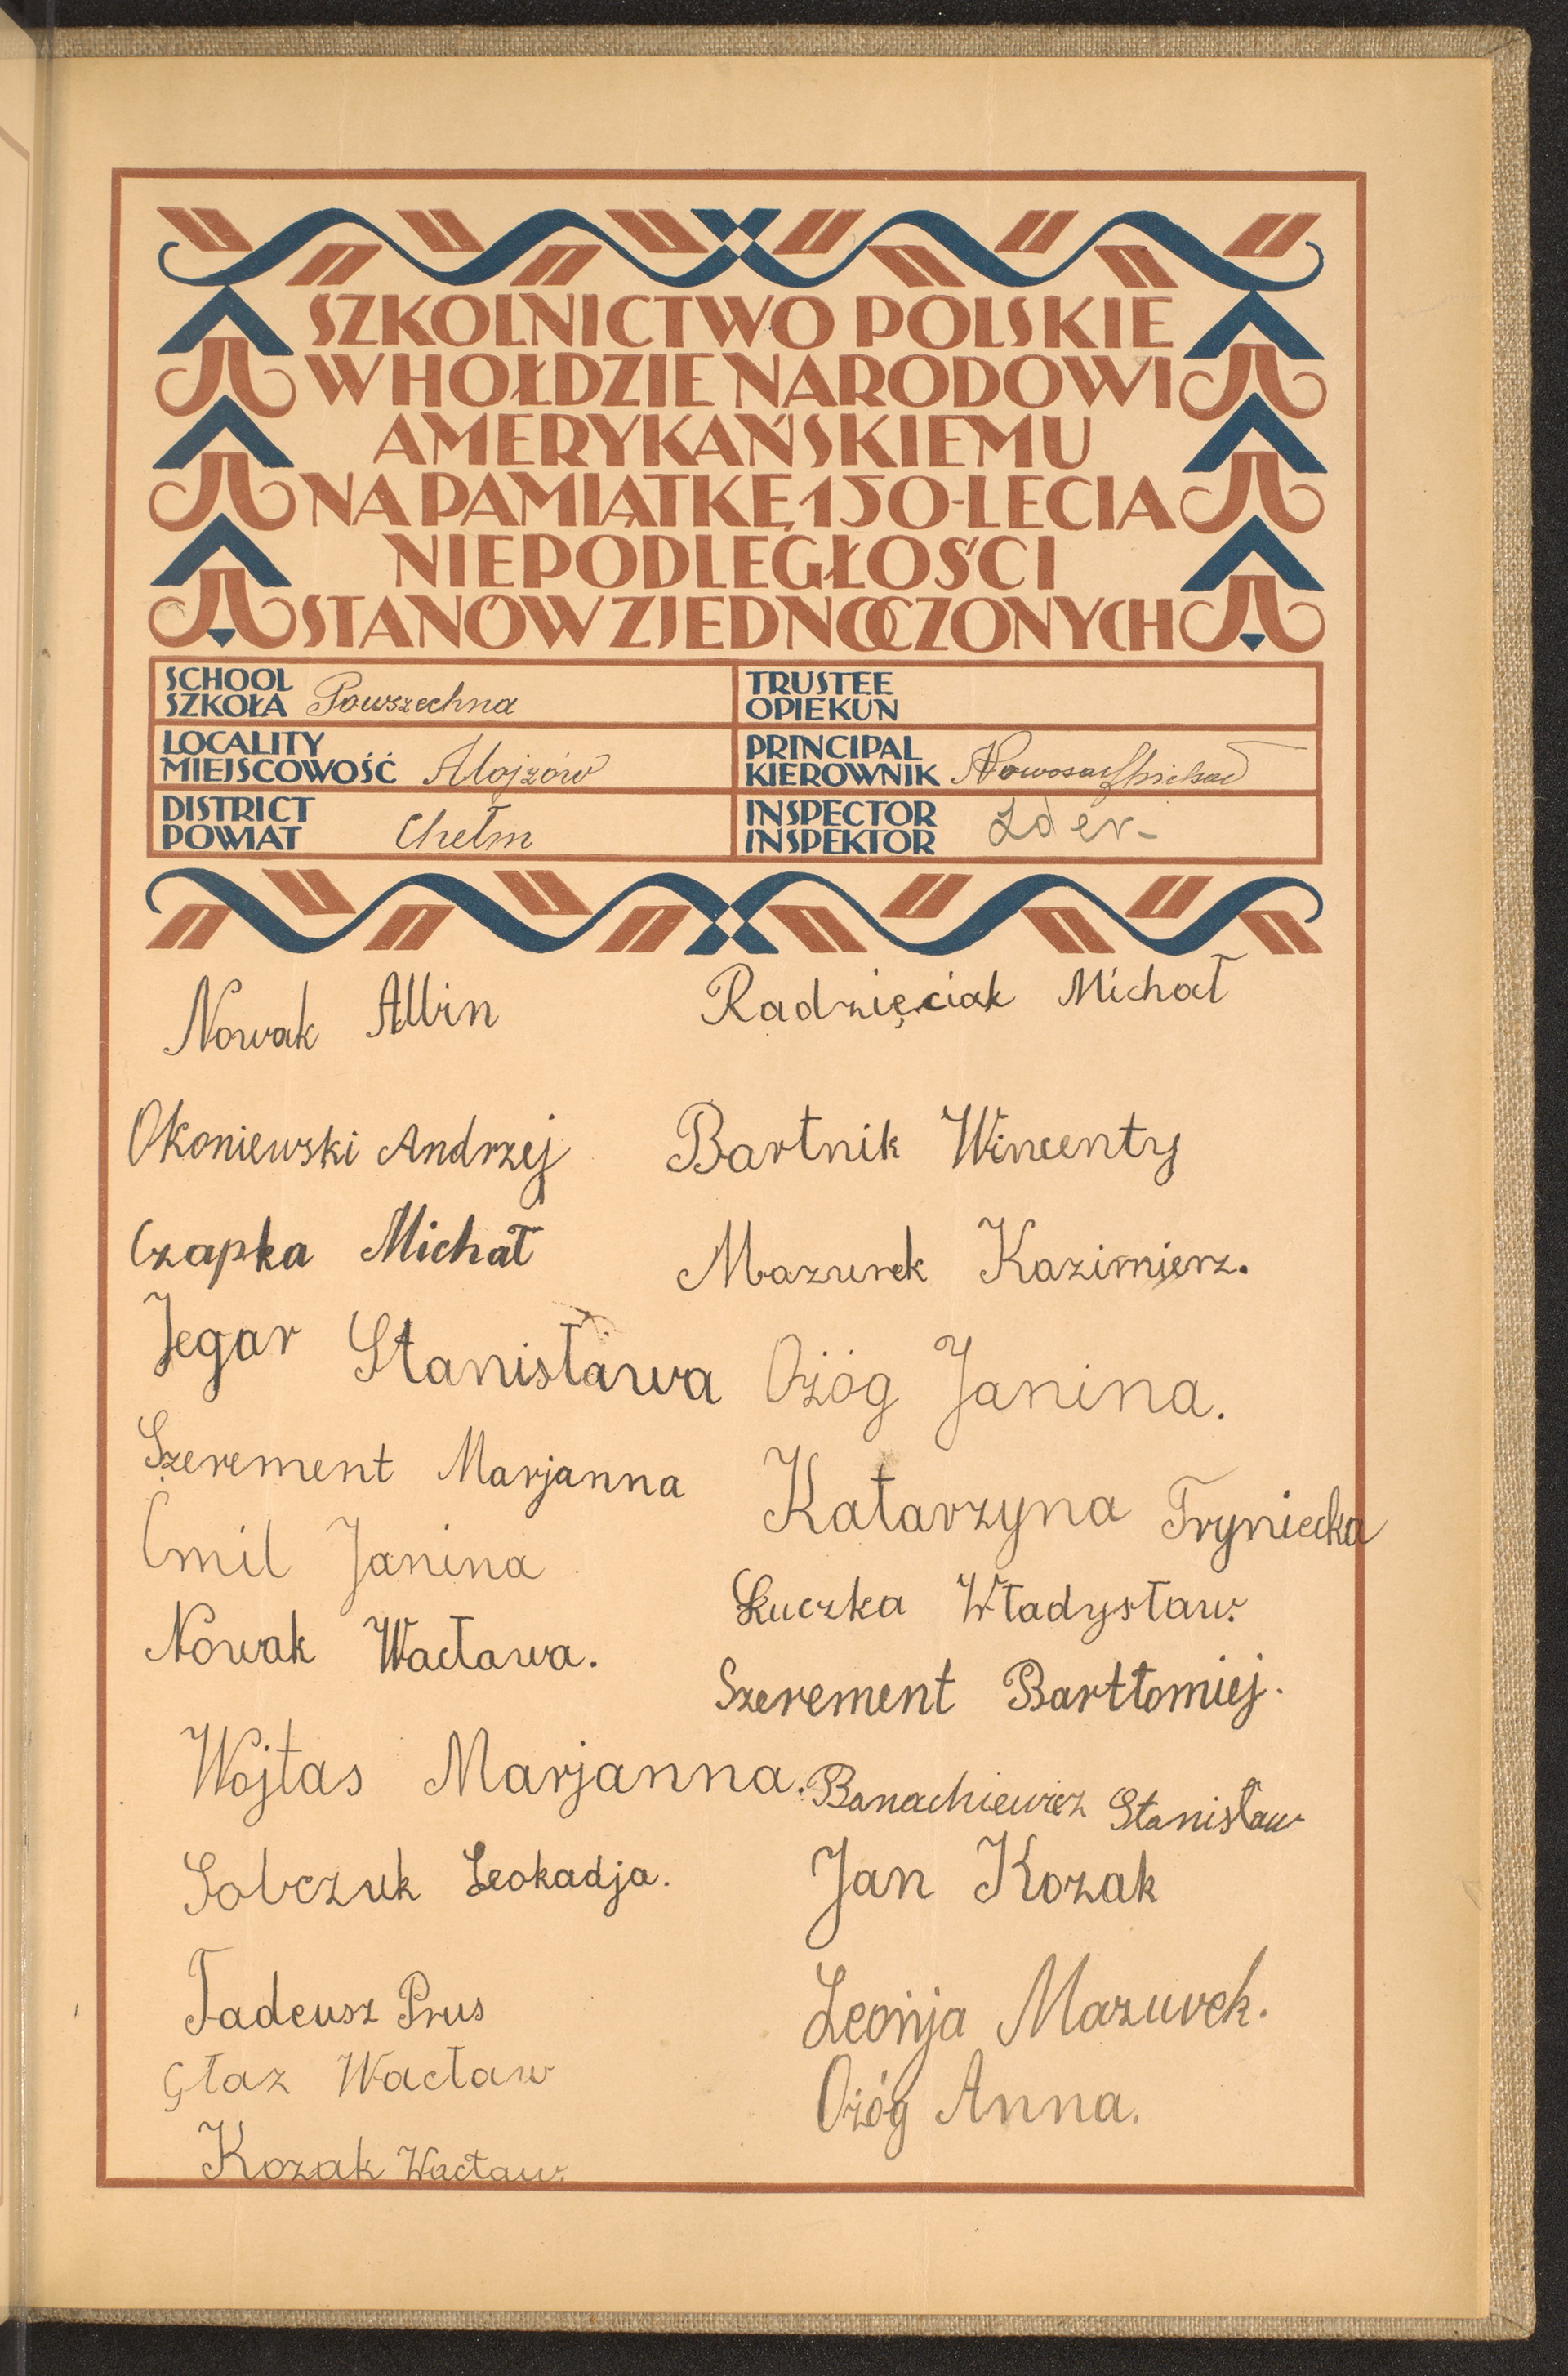 SZKOLNICTWO POLSKIE
W HOŁDZIE NARODOWI
AMERYKAŃSKIEMU
NA PAMIĄTKĘ 150-LECIA
NIEPODLEGŁOŚCI
STANÓW ZJEDNOCZONYCH
SCHOOL
SZKOŁA Powszechna
LOCALITY
MIEJSCOWOŚĆ Alojzów
DISTRICT
POWIAT Chełm
TRUSTEE
OPIEKUN
PRINCIPAL
KIEROWNIK
INSPECTOR
INSPEKTOR
Nowak Albin
Okoniewski Andrzej
Czapka Michał
Jegar Stanisława
Szerement Marjanna
Ćmil Janina
Nowak Wacława.
Wojtas Marjanna.
Sobczuk Leokadja.
Tadeusz Prus
Głaz Wacław
Kozak Wacław.
Radzięciak Michał
Bartnik Wincenty
Mazurek Kazimierz.
Ożóg Janina.
Katarzyna Tryniecka
Łuczka Władysław.
Szerement Bartłomiej.
Banachiewicz Stanisław
Jan Kozak
Leonja Mazurek.
Ożóg Anna.